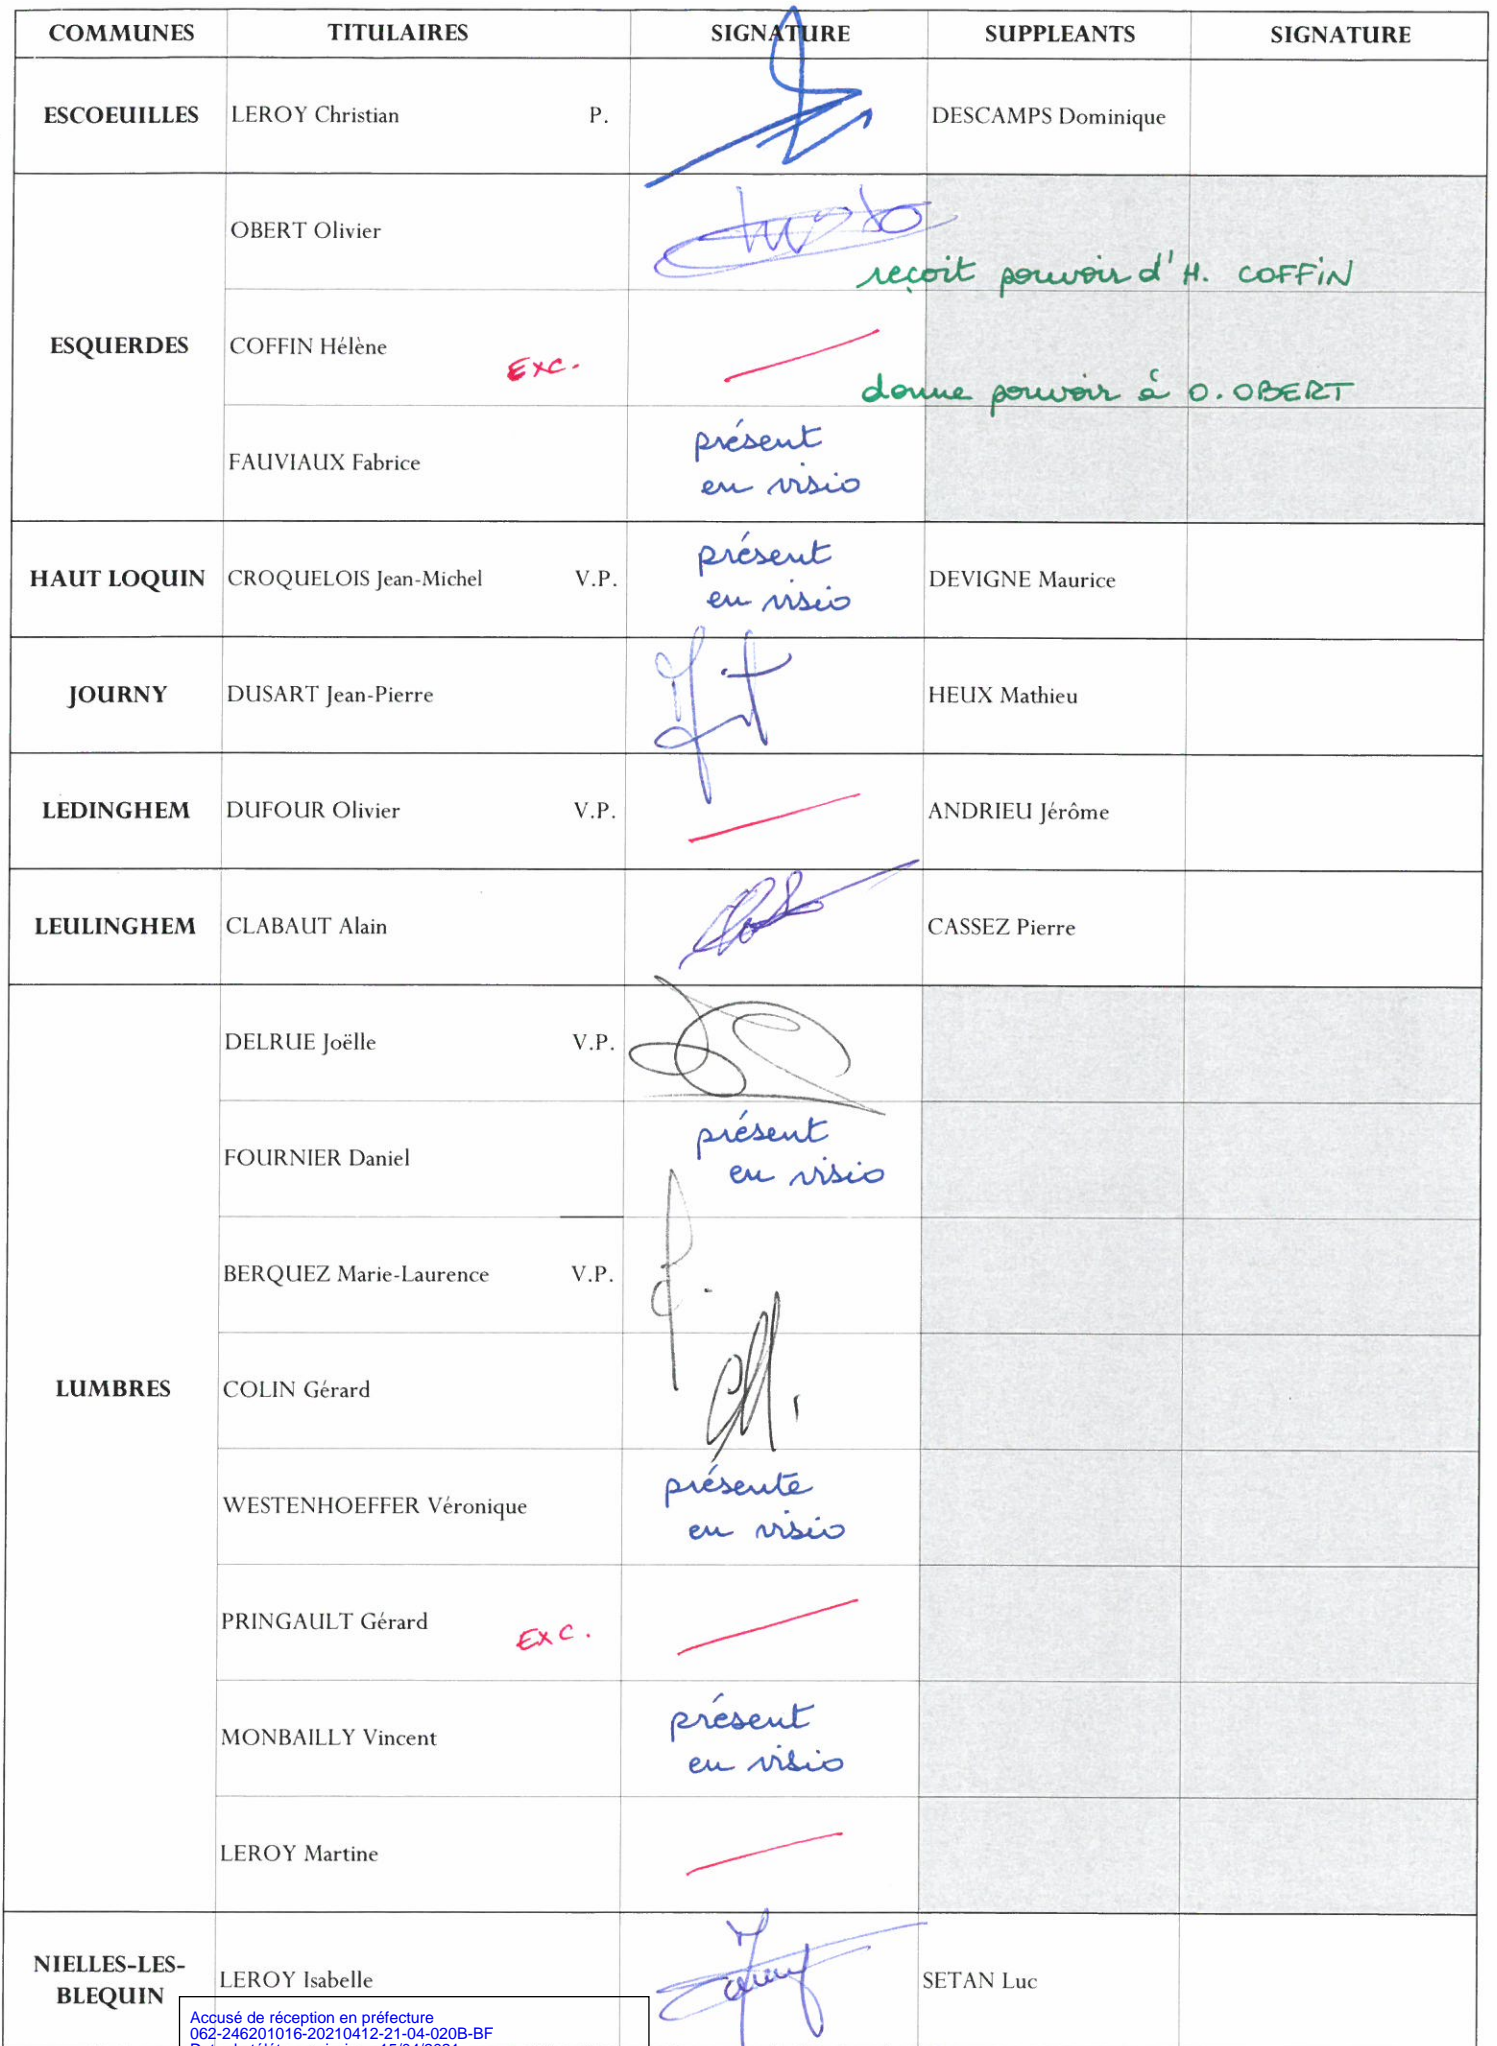 COMMUNES TITULAIRES SIGNATURE SUPPLEANTS SIGNATURE
ESCOEUILLES LEROY Christian P. DESCAMPS Dominique
OBERT Olivier
reçoit pouvoir d'H. COFFiN
ESQUERDES COFFIN Hélène Exc.
donne pouvoir à O. OBERT
FAUVIAUX Fabrice présent
en visio
HAUT LOQUIN CROQUELOIS Jean-Michel V.P. présent DEVIGNE Maurice
en visio
JOURNY DUSART Jean-Pierre HEUX Mathieu
LEDINGHEM DUFOUR Olivier V.P. ANDRIEU Jérôme
LEULINGHEM CLABAUT Alain CASSEZ Pierre
DELRUE Joëlle V.P.
FOURNIER Daniel présent
en visio
BERQUEZ Marie-Laurence V.P.
LUMBRES COLIN Gérard
WESTENHOEFFER Véronique présente
en visio
PRINGAULT Gérard Exc.
MONBAILLY Vincent présent
en visio
LEROY Martine
NIELLES-LES-
BLEQUIN LEROY Isabelle SETAN Luc
Accusé de réception en préfecture
062-246201016-20210412-21-04-020B-BF